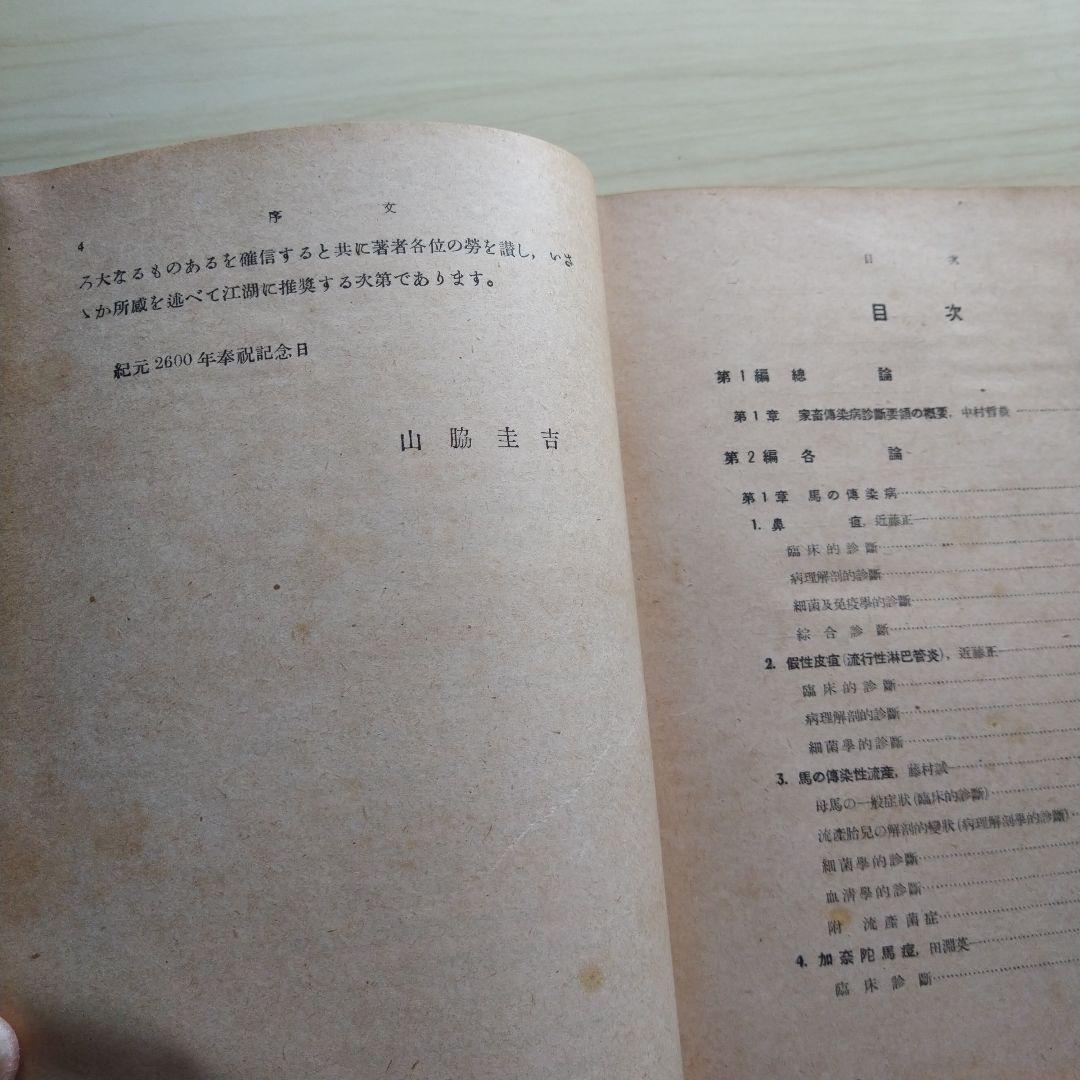 4
序 文
ろ大なるものあるを確信すると共に著者各位の勞を讃し，いさ
ゝか所感を述べて江湖に推奬する次第であります。
紀元2600年奉祝記念日
山脇圭吉
目 次
目 次
第1編 總 論
第1章 家畜傳染病診斷要領の概要，中村哲哉
第2編 各 論
第1章 馬の傳染病
1. 鼻 疽，近藤正一
臨床的診斷
病理解剖的診斷
細菌及免疫學的診斷
綜合診斷
2. 假性皮疽（流行性淋巴管炎），近藤正一
臨床的診斷
病理解剖的診斷
細菌學的診斷
3. 馬の傳染性流産，藤村誠
母馬の一般症狀（臨床的診斷）
流產胎兒の解剖的變狀（病理解剖學的診斷）
細菌學的診斷
血清學的診斷
附 流產菌症
4. 加奈陀馬痘，田淵英一
臨床診斷